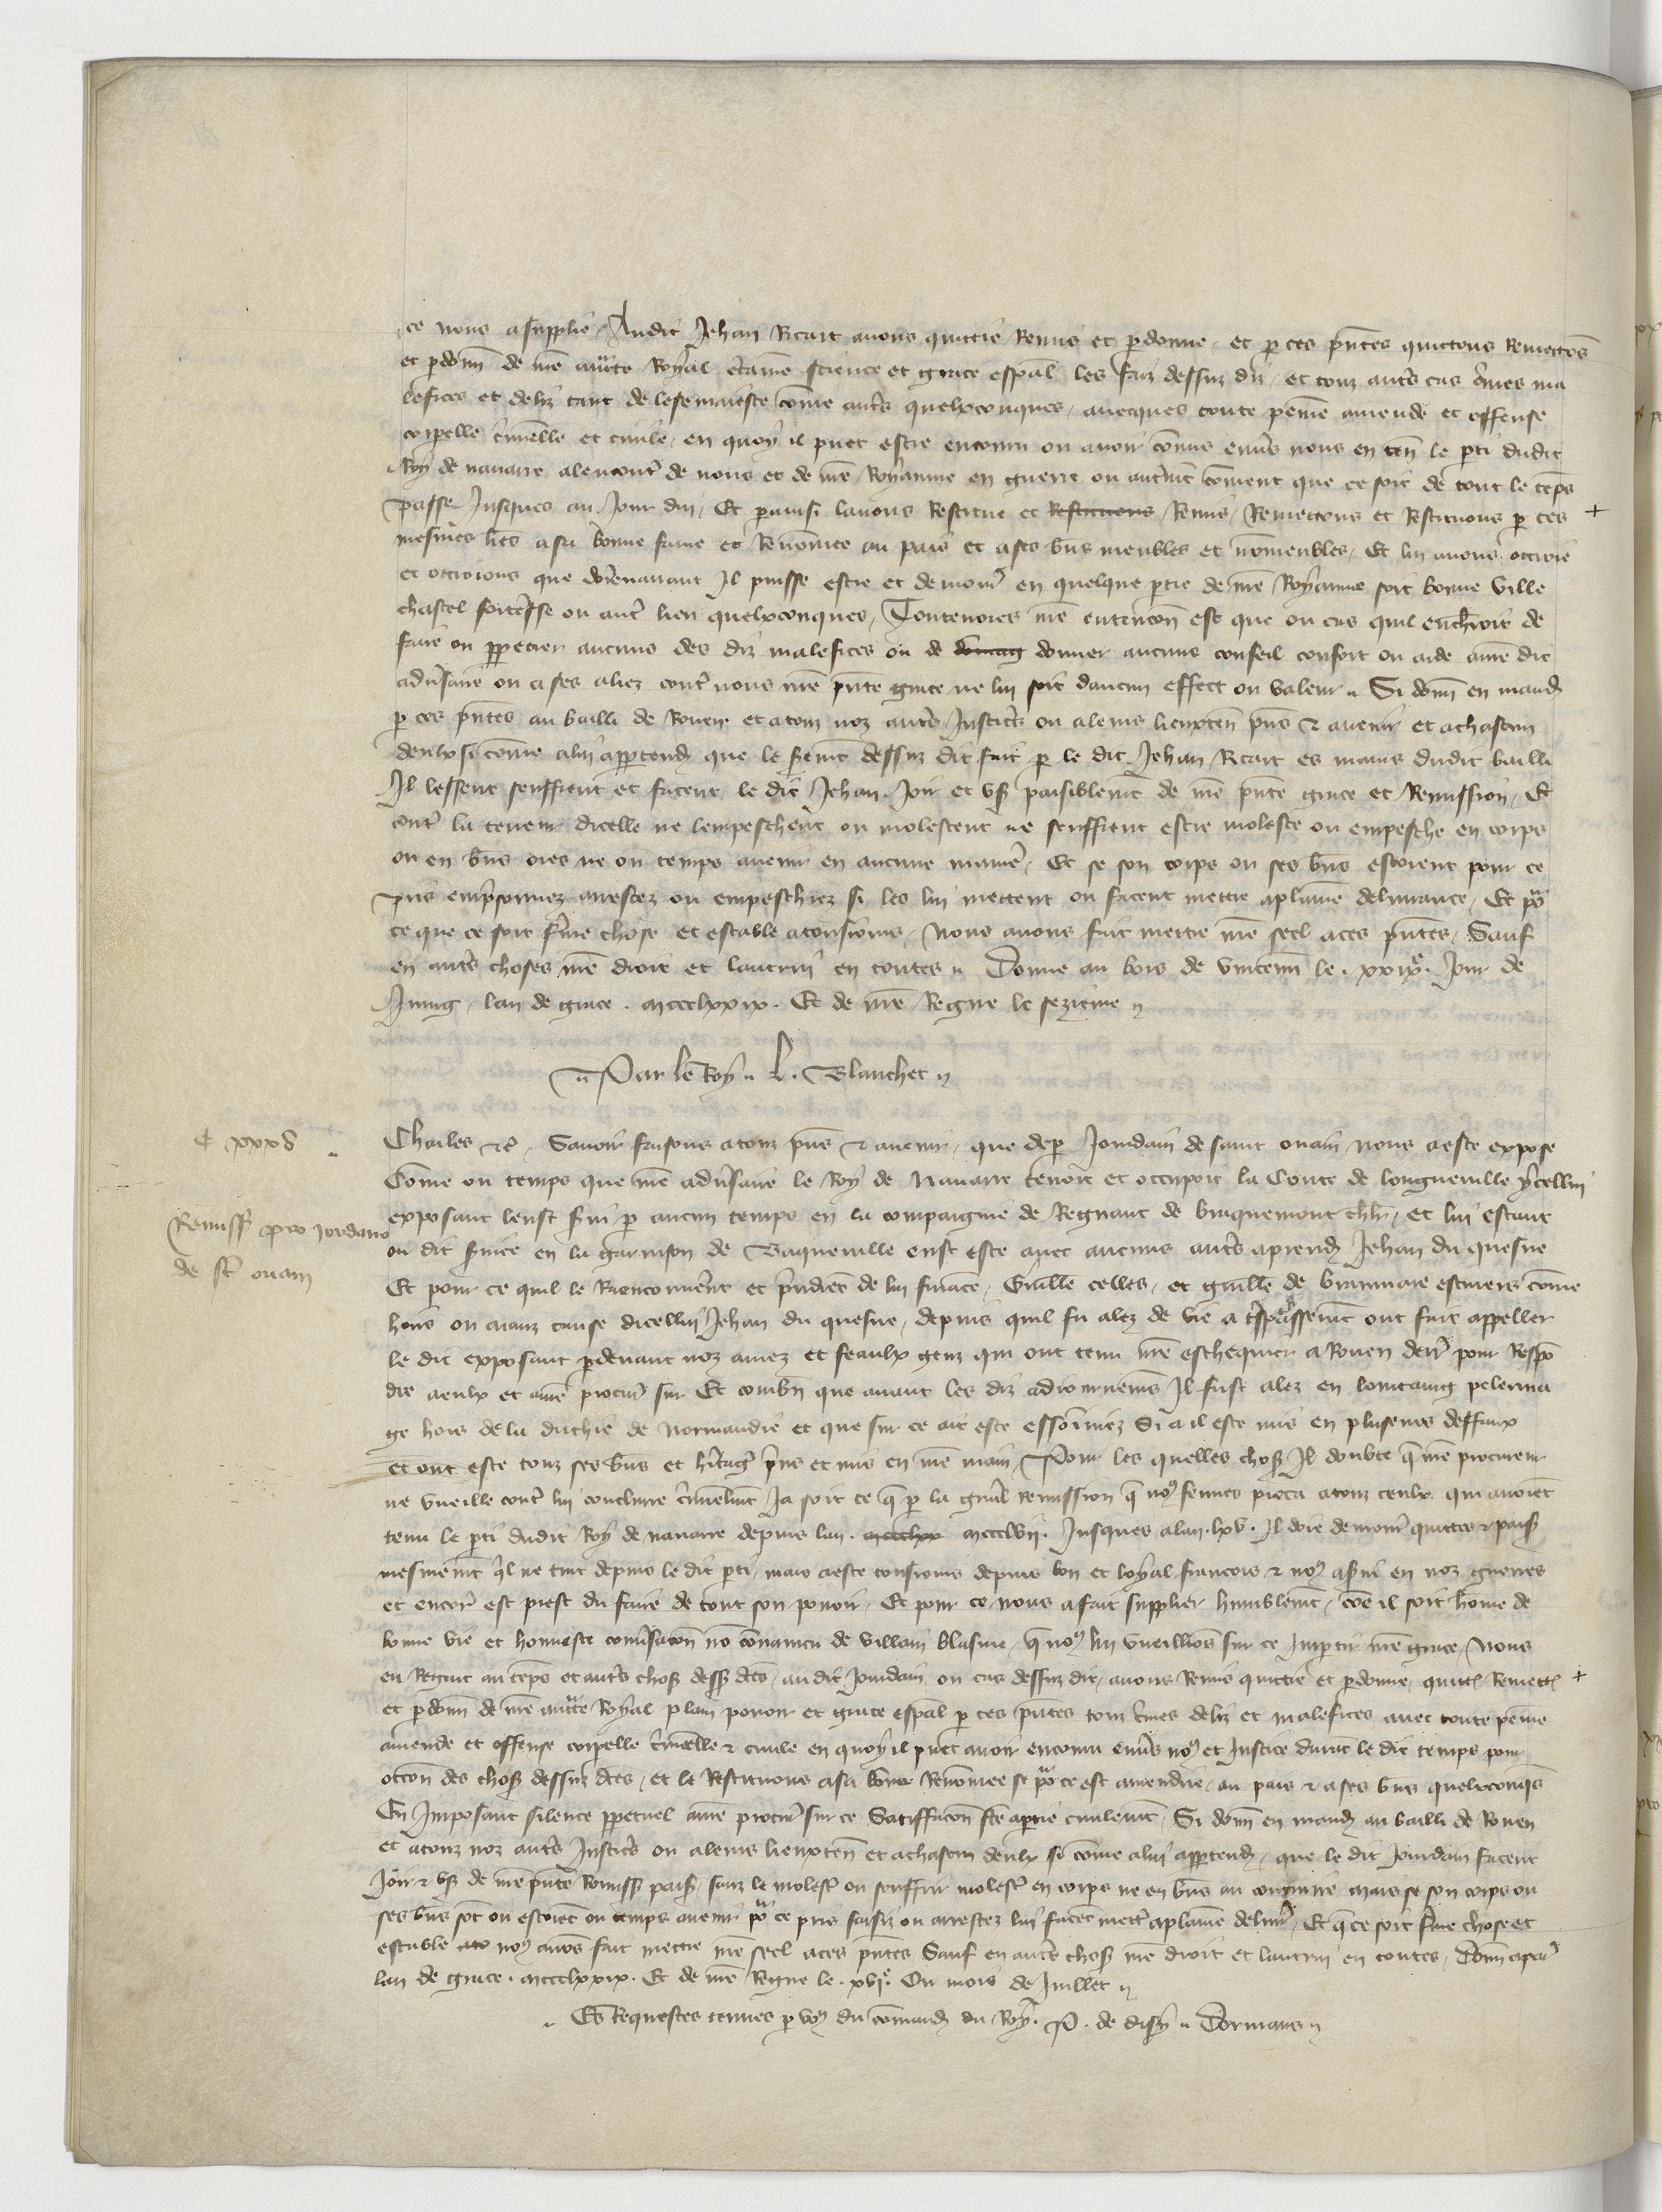 ce nous a supplie, Audit Jehan Ricart avons quittie Remis et pdonne et p ces pntes quittons Remettons
et pdonn de nre aucte Royal ctaine science et grace espal les faiz dessuz diz, et touz autres cas crimes ma
lefices et deliz tant de lesemaieste come autres quelxconques, avecques toute peine amende et offense
corpelle cminelle et civile, en quoy il puet estre encouru ou avoir comis envers nous en ten le pti dudit
Roy de navarre alencontre de nous et de nre Royaume en guerre ou autremt coment que ce soit de tout le teps
passe Jusques au Jour duy, Et p ainsi lavons Restitue et Restituons Remis, Remettons et Restituons p ces +
mesmes lres a sa bonne fame et Renomee au pais et a ses bns meubles et nonmeubles, Et lui avons octroie
et octroions que dorenavant Il puisse estre et demourer en quelque ptie de nre Royaume soit bonne ville
chastel forterese ou autre lieu quelxconques, Toutevoies nre entencon est que ou cas quil encherroit de
faire ou ppetrer aucuns des diz malefices ou de donner aucuns conseil confort ou aide a nre dit
adversaire ou a ses aliez contre nous nre pnte grace ne lui soit daucun effect ou valeur Si donn en mand
p ces pntes au bailli de Rouen et a touz noz autres Justiciers ou a leurs lieuxten pns & avenir et a chascun
deulx si come a lui apptend que le sermt dessuz dit fait p le dit Jehan Ricart es mains dudit bailli
Il lessent seuffrent et facent le dit Jehan Joir et user paisiblemt de nre pnte grace et Remission, Et
contre la teneur dicelle ne lempeschent ou molestent ne seuffrent estre moleste ou empesche en corps
ou en bns ores ne ou temps avenir en aucune maniere, Et se son corps ou ses bns estoient pour ce
pris emprisonnez arrestez ou empeschiez si les lui mettent ou facent mettre a plaine delivrance, Et pour
ce que ce soit ferme chose et estable a tousiours, Nous avons fait mettre nre seel a ces pntes, Sauf
en autres choses nre droit et lautrui en toutes Donne au bois de vincenn le . xxixe. Jour de
Juing, lan de grace . mccclxxix. Et de nre Regne le sezieme
Par le Roy L. Blanchet
Charles &c, Savoir faisons a touz pns & avenir, que de p Jourdain de saint ouain nous a este expose
Come ou temps que nre adversaire le Roy de Navarre tenoit et occupoit la Conte de longueville ycellui
exposant leust servi p aucun temps en la compaignie de Regnaut de braquemont chlr, et lui estant
Remiss pro Jordano
de sco ouain
ou dit service en la garnison de Baqueville eust este avec aucuns autres a prendre Jehan du quesne
Et pour ce quil le Riencontrerent et prindrent de lui finance, Guille celles, et guille de brumare escuiers come
hoirs ou aianz cause dicellui Jehan du quesne, depuis quil fu alez de vie a trespassement ont fait appeller
le dit exposant p devant noz amez et feaulx genz qui ont tenu nre eschequier a Rouen derr pour Respo
dre a eulx et a nre procur sur Et combn que avant les diz adiournemens Il fust alez en lointaing pelerina
ge hors de la duchie de Normandie et que sur ce ait este essoiniez Si a il este mis en pluseurs deffaux
et ont este touz ses bns et heritages prins et mis en nre main, Pour les quelles choses Il doubte que nre procureur
ne vueille contre lui conclurre criminelmt Ja soit ce que p la gnral remission que nous feimes pieca a touz ceulx qui avoient
tenu le pti dudit Roy de navarre depuis lan . mccclvii. Jusques a lan . lxv. Il doie demourer quittes & paisi
mesmement quil ne tint depuis le dit pti, mais a este tousiours depuis bon et loyal francois & nous a servi en noz guerres
et encor est prest du faire de tout son pooir, Et pour ce nous a fait supplier humblemt, come il soit home de
bonne vie et honneste conversacon non convaincu de villain blasme, que nous lui vueillions sur ce Impartir nre grace, Nous
eu Regart au teps et autres choses dessus dtes, au dit Jourdain ou cas dessuz dit, avons Remis quittie et pdonne, quitt Remett +
et pdonn de nre aucte Royal plain pooir et grace espal p ces pntes touz crimes deliz et malefices avec toute peine
amende et offense corpelle criminelle & civile en quoy il puet avoir encouru envers nous et Justice durant le dit temps pour
occon des choses dessuz dtes, et le Restituons a sa bonne Renomee se pour ce est amendrie, au pais & a ses bns quelxconqs
En Imposant silence ppetuel a nre procur sur ce Satiffacon fte a ptie civilemt, Si donn en mand au bailli de Rouen
et a touz noz autres Justiciers ou a leurs lieuxten et a chascun deulx si come a lui apptend, que le dit Jourdain facent
Joir & user de nre pnte Remiss paisi, sanz le molester ou souffrir molester en corps ne en bns au contraire mais se son corps ou
ses bns sont ou estoient ou temps avenir pour ce pris saisiz ou arrestez lui facent mettre a plaine deliv, Et que ce soit ferme chose et
estable nous avons fait mettre nre seel a ces pntes Sauf en autres choses nre droit et lautrui en toutes, Donn a paris
lan de grace . mccclxxix. Et de nre Regne le . xvie. Ou mois de Juillet
Es Requestes tenues p vous du comand du Roy. P. de disy Dormans